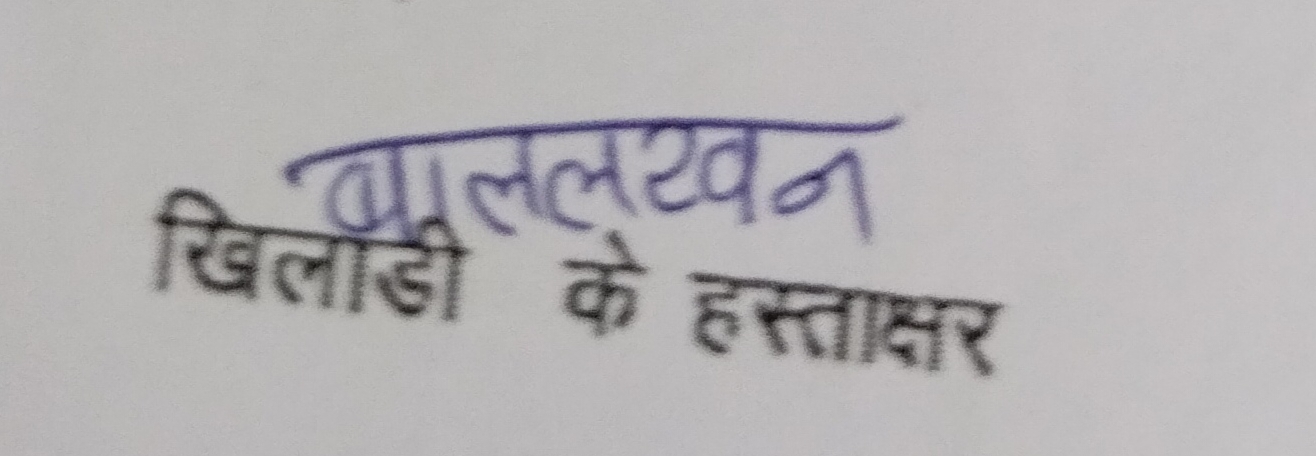 बाललखन
खिलाडी के हस्ताक्षर